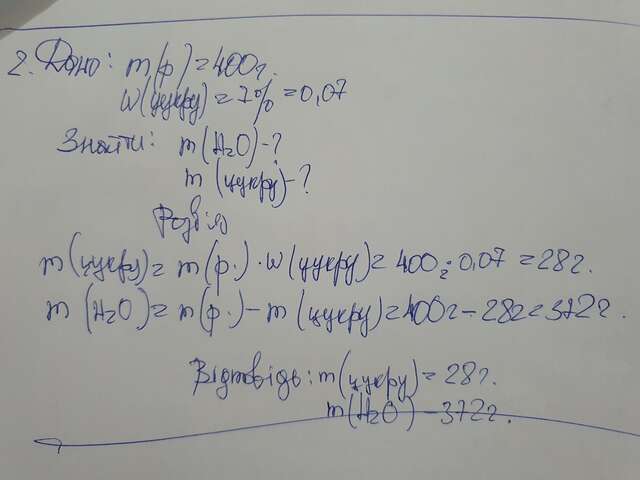 2. Дано: m(р)=400г.
w(цукру)=7%=0,07
Знайти: m(H₂O)-?
m(цукру)-?
Розв'яз
m(цукру)= m(р.)·w(цукру)=400г·0,07=28г.
m(H₂O)= m(р.)-m(цукру)=400г-28г=372г.
Відповідь: m(цукру)=28г.
m(H₂O)-372г.